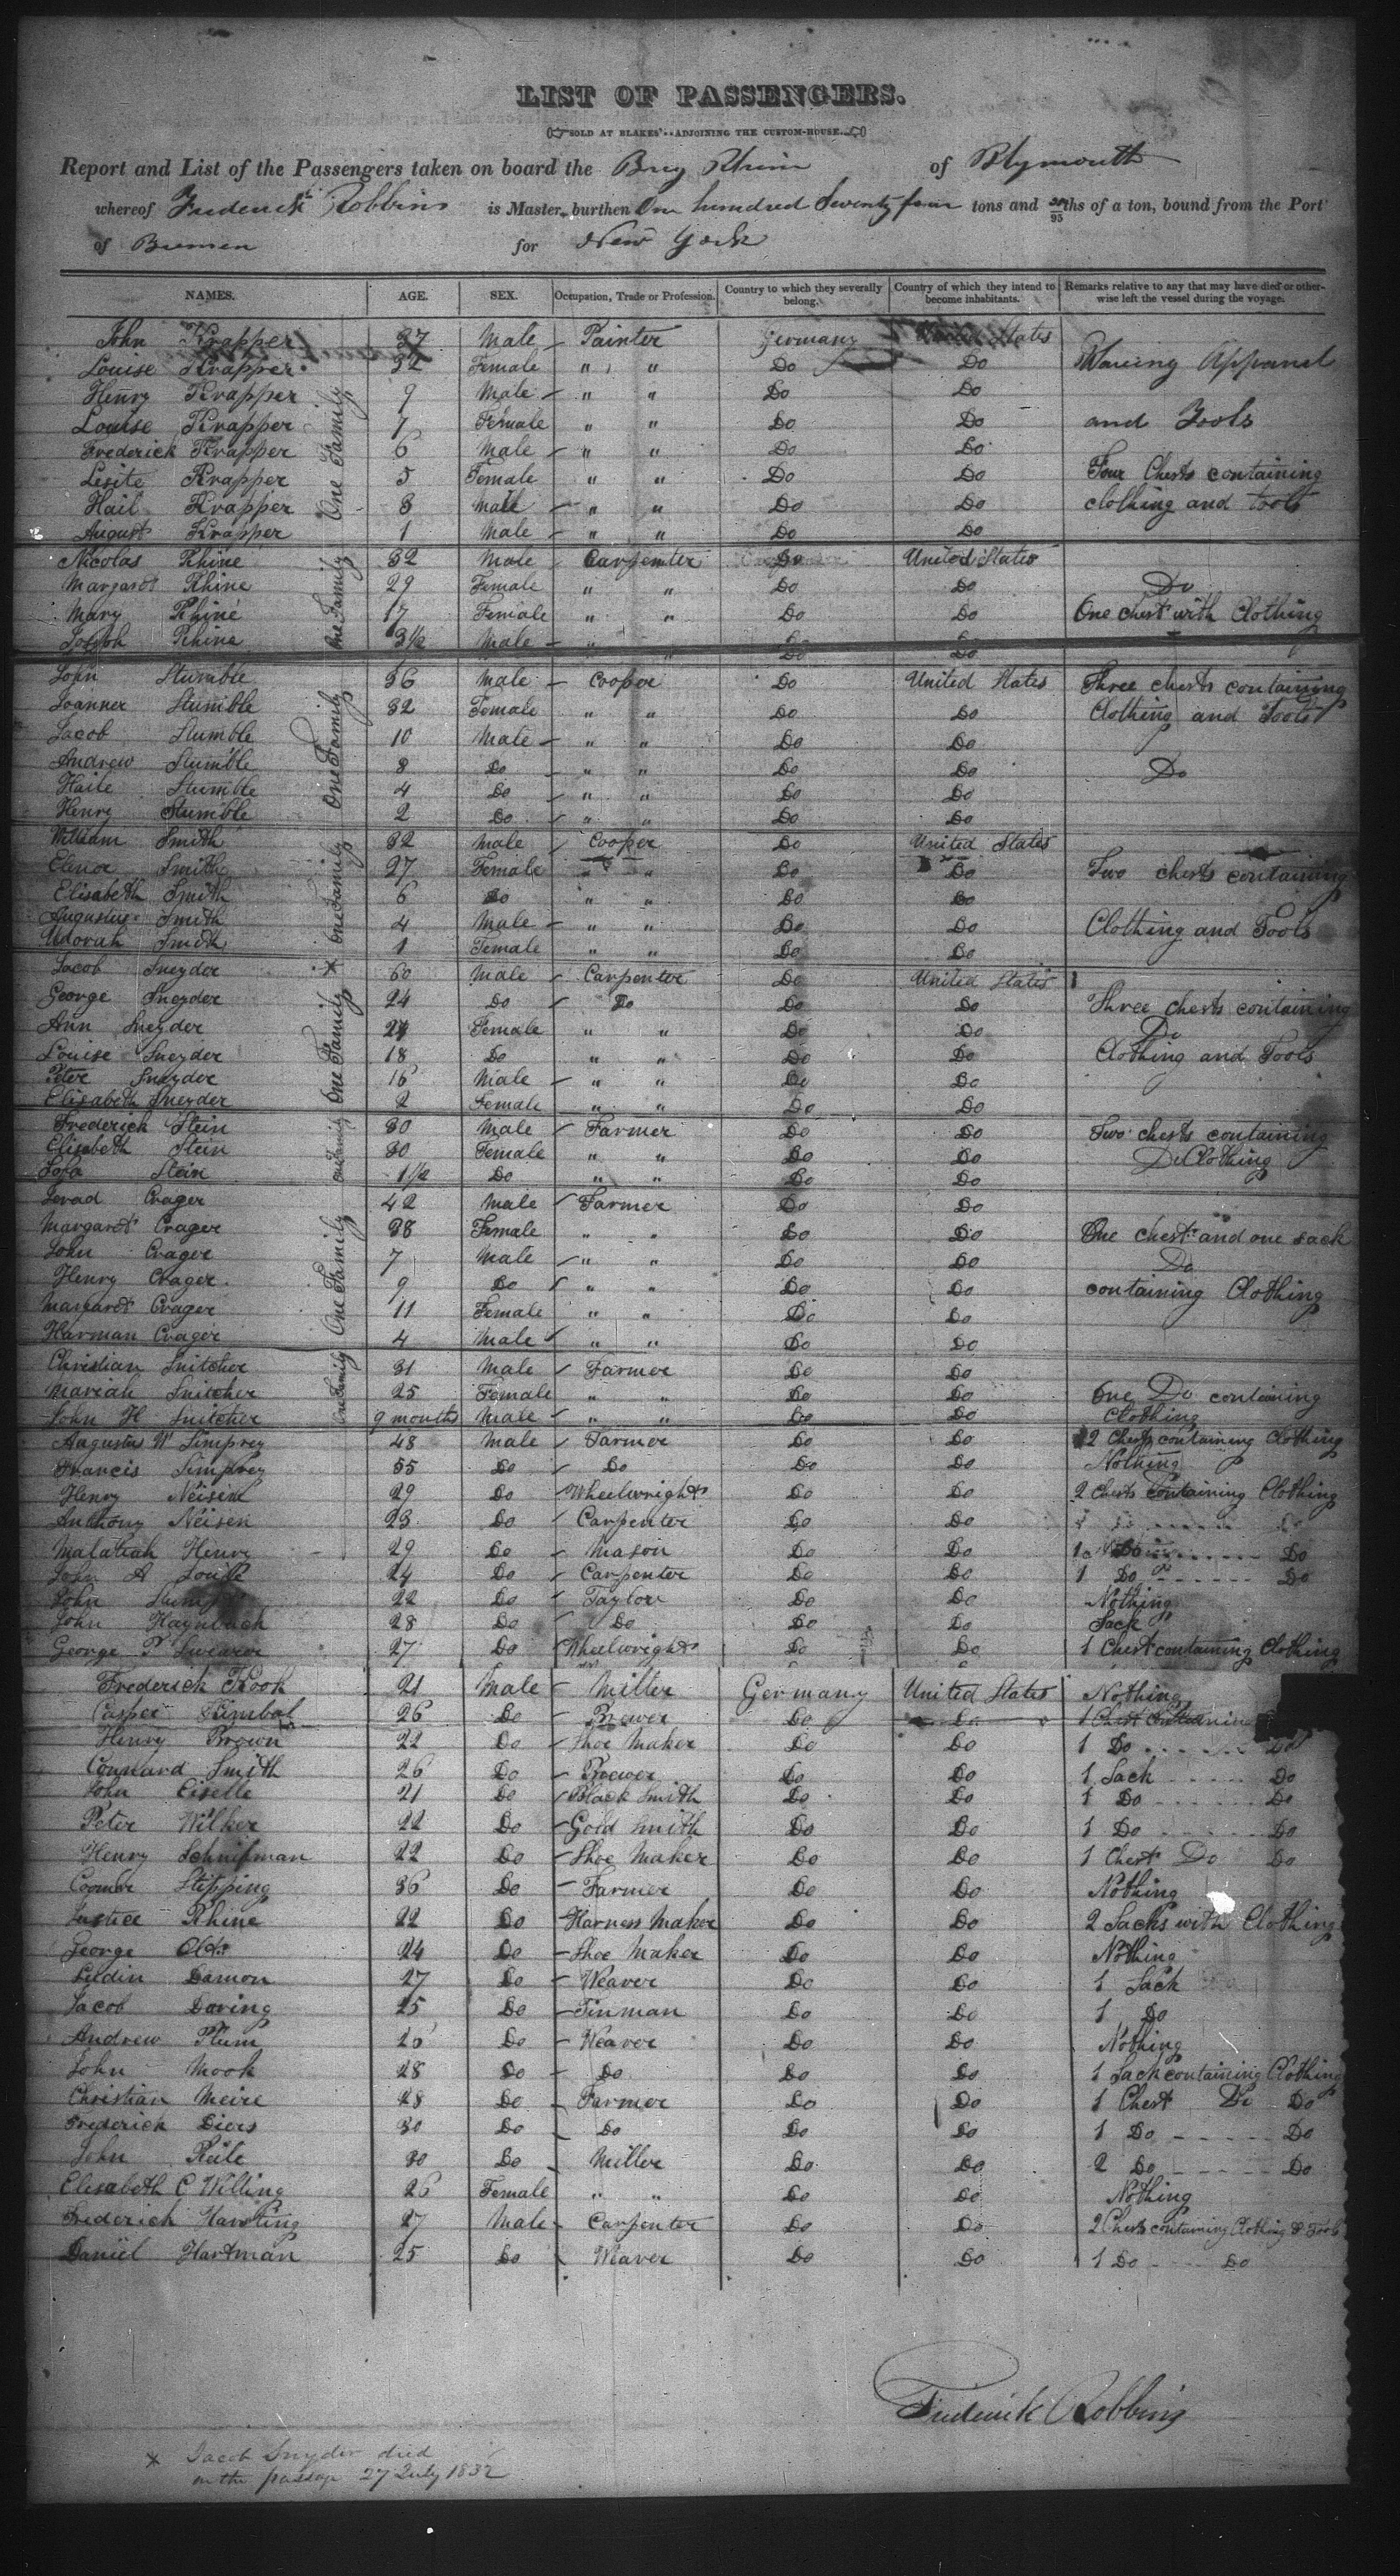 LIST OF PASSENGERS.
SOLD AT BLAKES'..ADJOINING THE CUSTOM-HOUSE.
Report and List of the Passengers taken on board the Brig Rhine of Plymouth
whereof Frederick Robbins is Master, burthen One hundred Seventy four tons and /95ths of a ton, bound from the Port
of Bremen for New York
NAMES. AGE. SEX. Occupation, Trade or Profession. Country to which they severally belong. Country of which they intend to become inhabitants. Remarks relative to any that may have died or otherwise left the vessel during the voyage.
John Krapper 37 Male Painter Germany United States
Louise Krapper 32 Female " " Do Do Wareing Apparel
Henry Krapper 9 Male " " Do Do
Louise Krapper 7 Female " " Do Do and Tools
Frederick Krapper 6 Male " " Do Do
Lesite Krapper 5 Female " " Do Do Four Chests containing
Hail Krapper 3 Male " " Do Do clothing and tools
August Krapper 1 Male " " Do Do
One Family
Nicolas Rhine 32 Male Carpenter Do United States
Margaret Rhine 29 Female " " Do Do Do
Mary Rhine 17 Female " " Do Do One chest with Clothing
Joseph Rhine 3½ Male " " Do Do
One Family
John Stumble 36 Male Cooper Do United States Three chests containing
Joanner Stumble 32 Female " " Do Do Clothing and Tools
Jacob Stumble 10 Male " " Do Do
Andrew Stumble 8 Do " " Do Do Do
Haile Stumble 4 Do " " Do Do
Henry Stumble 2 Do " " Do Do
One Family
William Smith 32 Male Cooper Do United States
Elenor Smith 27 Female " " Do Do Two chests containing
Elisabeth Smith 6 Do " " Do Do
Augustus Smith 4 Male " " Do Do Clothing and Tools
Udorah Smith 1 Female " " Do Do
One Family
Jacob Sneyder × 60 Male Carpenter Do United States
George Sneyder 24 Do Do Do Do Three chests containing
Ann Sneyder 24 Female " " Do Do Do
Louise Sneyder 18 Do " " Do Do Clothing and Tools
Peter Sneyder 16 Male " " Do Do
Elisabeth Sneyder 2 Female " " Do Do
One Family
Frederick Stein 30 Male Farmer Do Do Two chests containing
Elisabeth Stein 30 Female " " Do Do Do Clothing
Sofa Stein 1½ Do " " Do Do
One Family
Jerad Crager 42 Male Farmer Do Do
Margaret Crager 38 Female " " Do Do One chest and one sack
John Crager 7 Male " " Do Do Do
Henry Crager 9 Do " " Do Do containing Clothing
Margaret Crager 11 Female " " Do Do
Harman Crager 4 Male " " Do Do
One Family
Christian Snitcher 31 Male Farmer Do Do
Mariah Snitcher 25 Female " " Do Do One Do containing
John H Snitcher 9 months Male " " Do Do Clothing
One Family
Augustus W Simprey 48 Male Farmer Do Do 2 Chests containing Clothing
Francis Simprey 55 Do Do Do Do Nothing
Henry Neisen 29 Do Wheelwright Do Do 2 Chests containing Clothing
Anthony Neisen 23 Do Carpenter Do Do Do
Malatiah Henry 29 Do Mason Do Do 1 Do Do
John A 24 Do Carpenter Do Do 1 Do Do
John 22 Do Taylor Do Do Nothing
John Haynback 28 Do Do Do Do Sack
George P Swearer 27 Do Wheelwright Do Do 1 Chest containing Clothing
Frederick Kook 21 Male Miller Germany United States Nothing
Casper Kimbal 26 Do Brewer Do Do 1 Chest containing
Henry Brown 22 Do Shoe Maker Do Do 1 Do Do
Connard Smith 26 Do Brewer Do Do 1 Sack Do
John Eiselle 21 Do Black Smith Do Do 1 Do Do
Peter Wilker 22 Do Gold Smith Do Do 1 Do Do
Henry Schnifman 22 Do Shoe Maker Do Do 1 Chest Do Do
Coomer Stipping 36 Do Farmer Do Do Nothing
Justice Rhine 22 Do Harness Maker Do Do 2 Sacks with Clothing
George 24 Do Shoe Maker Do Do Nothing
Ludin Damon 27 Do Weaver Do Do 1 Sack
Jacob Doring 25 Do Tinman Do Do 1 Do
Andrew Plum 26 Do Weaver Do Do Nothing
John Mook 28 Do Do Do Do 1 Sack containing Clothing
Christian Meire 28 Do Farmer Do Do 1 Chest Do Do
Frederick Diers 30 Do Do Do Do 1 Do Do
John Reile 30 Do Miller Do Do 2 Do Do
Elisabeth C Willing 26 Female " " Do Do Nothing
Frederick Harsting 27 Male Carpenter Do Do 2 Chests containing Clothing & Tools
Daniel Hartman 25 Do Weaver Do Do 1 Do Do
Frederick Robbins
× Jacob Snyder died
on the passage 27 July 1832